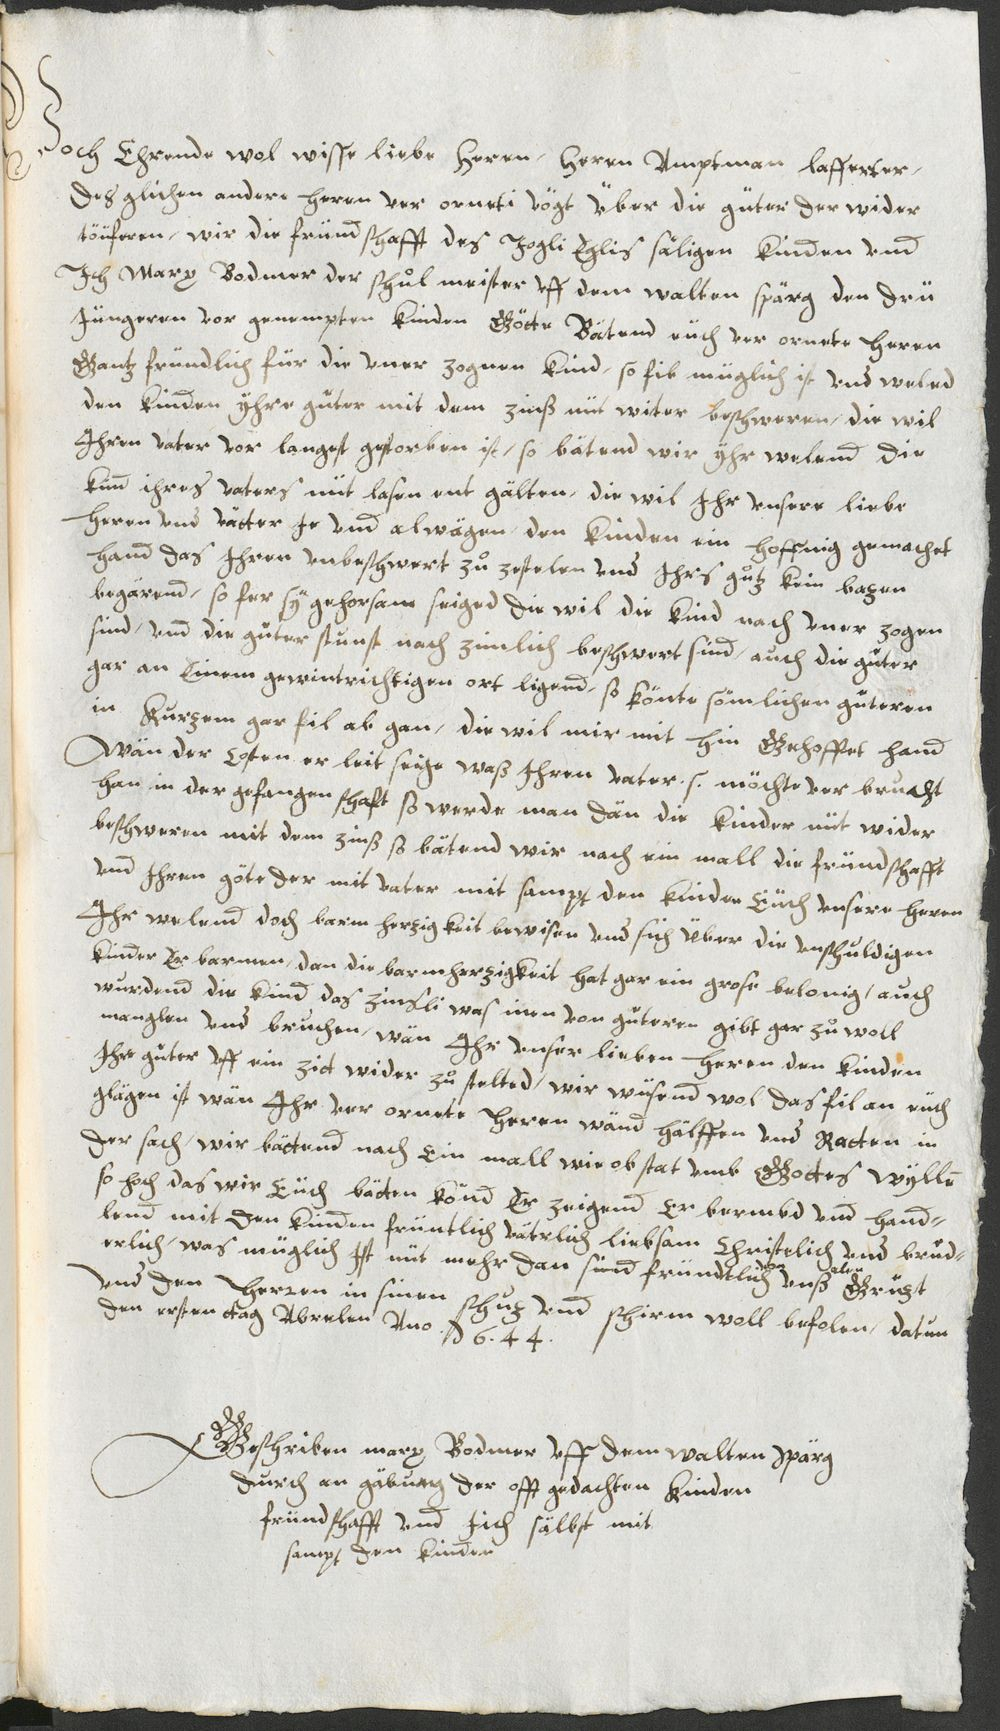 Hoch Ehrende wol wisse liebe Heren, Heren Amptman lafferter,
des glichen andere heren ver orneti vögt über die güter der wider
töüferen, wir die fründschafft des Jogli Eglis säligen kinden und
Ich Marx Bodmer der schůl meister uff dem walten spärg den drü
Jüngeren vor genempten kinden Götte Bätend euch ver ornete heren
Gantz fründlich für die uner zognen kind, so fil müglich ist und weled
den kinden yhre güter mit dem zinß nüt witer beschweren, die wil
Ihren vater vor langest gestorben ist, so bätend wir yhr welend die
kind ihres vaters nüt lasen ent gälten, die wil Ihr unsere liebe
heren und vätter Je und alwägen den kinden ein hoffnig gemachet
hand das Ihren unbeschwert zů zestelen und Ihrs gůtz kein bazen
begärend, so fer sy gehorsam seiged die wil die kind nach uner zogen
sind, und die güter sunst nach zimlich beschwert sind, auch die güter
gar an Einem gewintrichtigen ort ligend, so könte sömlichen güteren
in kurzem gar fil ab gan, die wil mir mit hin Gehoffet hand
Wän der Costen er leit seige waß Ihren vater s. möchte ver brucht
han in der gefangenschafft so werde man dän die kinder nüt wider
beschweren mit dem zinß so bätend wir nach ein mall die fründschafft
und Ihren göte der mit vater mit sampt den kinden Eüch unsere heren
Ihr welend doch barm herzigkeit bewisen und sich über die unschuldigen
kinder Er barmen, dan die barmherzigkeit hat gar ein grose belonig, auch
wurdend die kind das zinsli was inen von güteren gibt gar zů woll
manglen und bruchen, wän Ihr unser lieben heren den kinden
Ihre güter uff ein zict wider zů steltend, wir wüsend wol das fil an euch
glägen ist wän Ihr ver ornete heren wänd hälffen und Racten in
der sach, wir bättend nach Ein mall wie obstat umb Gottes wyllē
so hoch das wir Eüch bätten könd Er zeigend Er bermbd und hand=
lend mit den kinden früntlich väterlich liebsam Christelich und brůd=
erlich, was müglich Ist nüt mehr dan sind fründtlich von unß alen Grüzt
und den herren in sinen schuz und schirm woll befolen, datum
den ersten tag Abrelen Ano 1644.
Geschriben marx Bodmer uff dem walten spärg
durch an gäbung der offt gedachten kinden
fründschafft und Iich sälbst mit
sampt den kinden